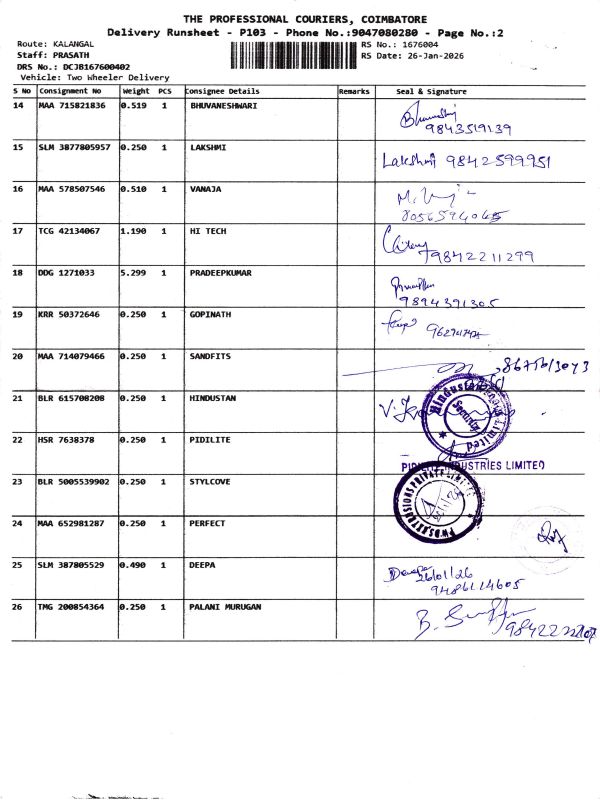 THE PROFESSIONAL COURIERS, COIMBATORE
Delivery Runsheet - P103 - Phone No.:9047080280 - Page No.:2
Route: KALANGAL
RS No.: 1676004
Staff: PRASATH
RS Date: 26-Jan-2026
DRS No.: DCJB167600402
Vehicle: Two Wheeler Delivery
S No Consignment No Weight PCS Consignee Details Remarks Seal & Signature
14 MAA 715821836 0.519 1 BHUVANESHWARI
9843519139
15 SLM 3877805957 0.250 1 LAKSHMI Lakshmi 9842599951
16 MAA 578507546 0.510 1 VANAJA
8056594065
17 TCG 42134067 1.190 1 HI TECH
9842211299
18 DDG 1271033 5.299 1 PRADEEPKUMAR
9894391305
19 KRR 50372646 0.250 1 GOPINATH
20 MAA 714079466 0.250 1 SANDFITS
21 BLR 615708208 0.250 1 HINDUSTAN
Hindustan Limited
Security
22 HSR 7638378 0.250 1 PIDILITE
PIDILITE INDUSTRIES LIMITED
23 BLR 5005539902 0.250 1 STYLCOVE
PRIVATE LIMITED
24 MAA 652981287 0.250 1 PERFECT
25 SLM 387805529 0.490 1 DEEPA Deepa
26/01/26
9486114605
26 TMG 200854364 0.250 1 PALANI MURUGAN